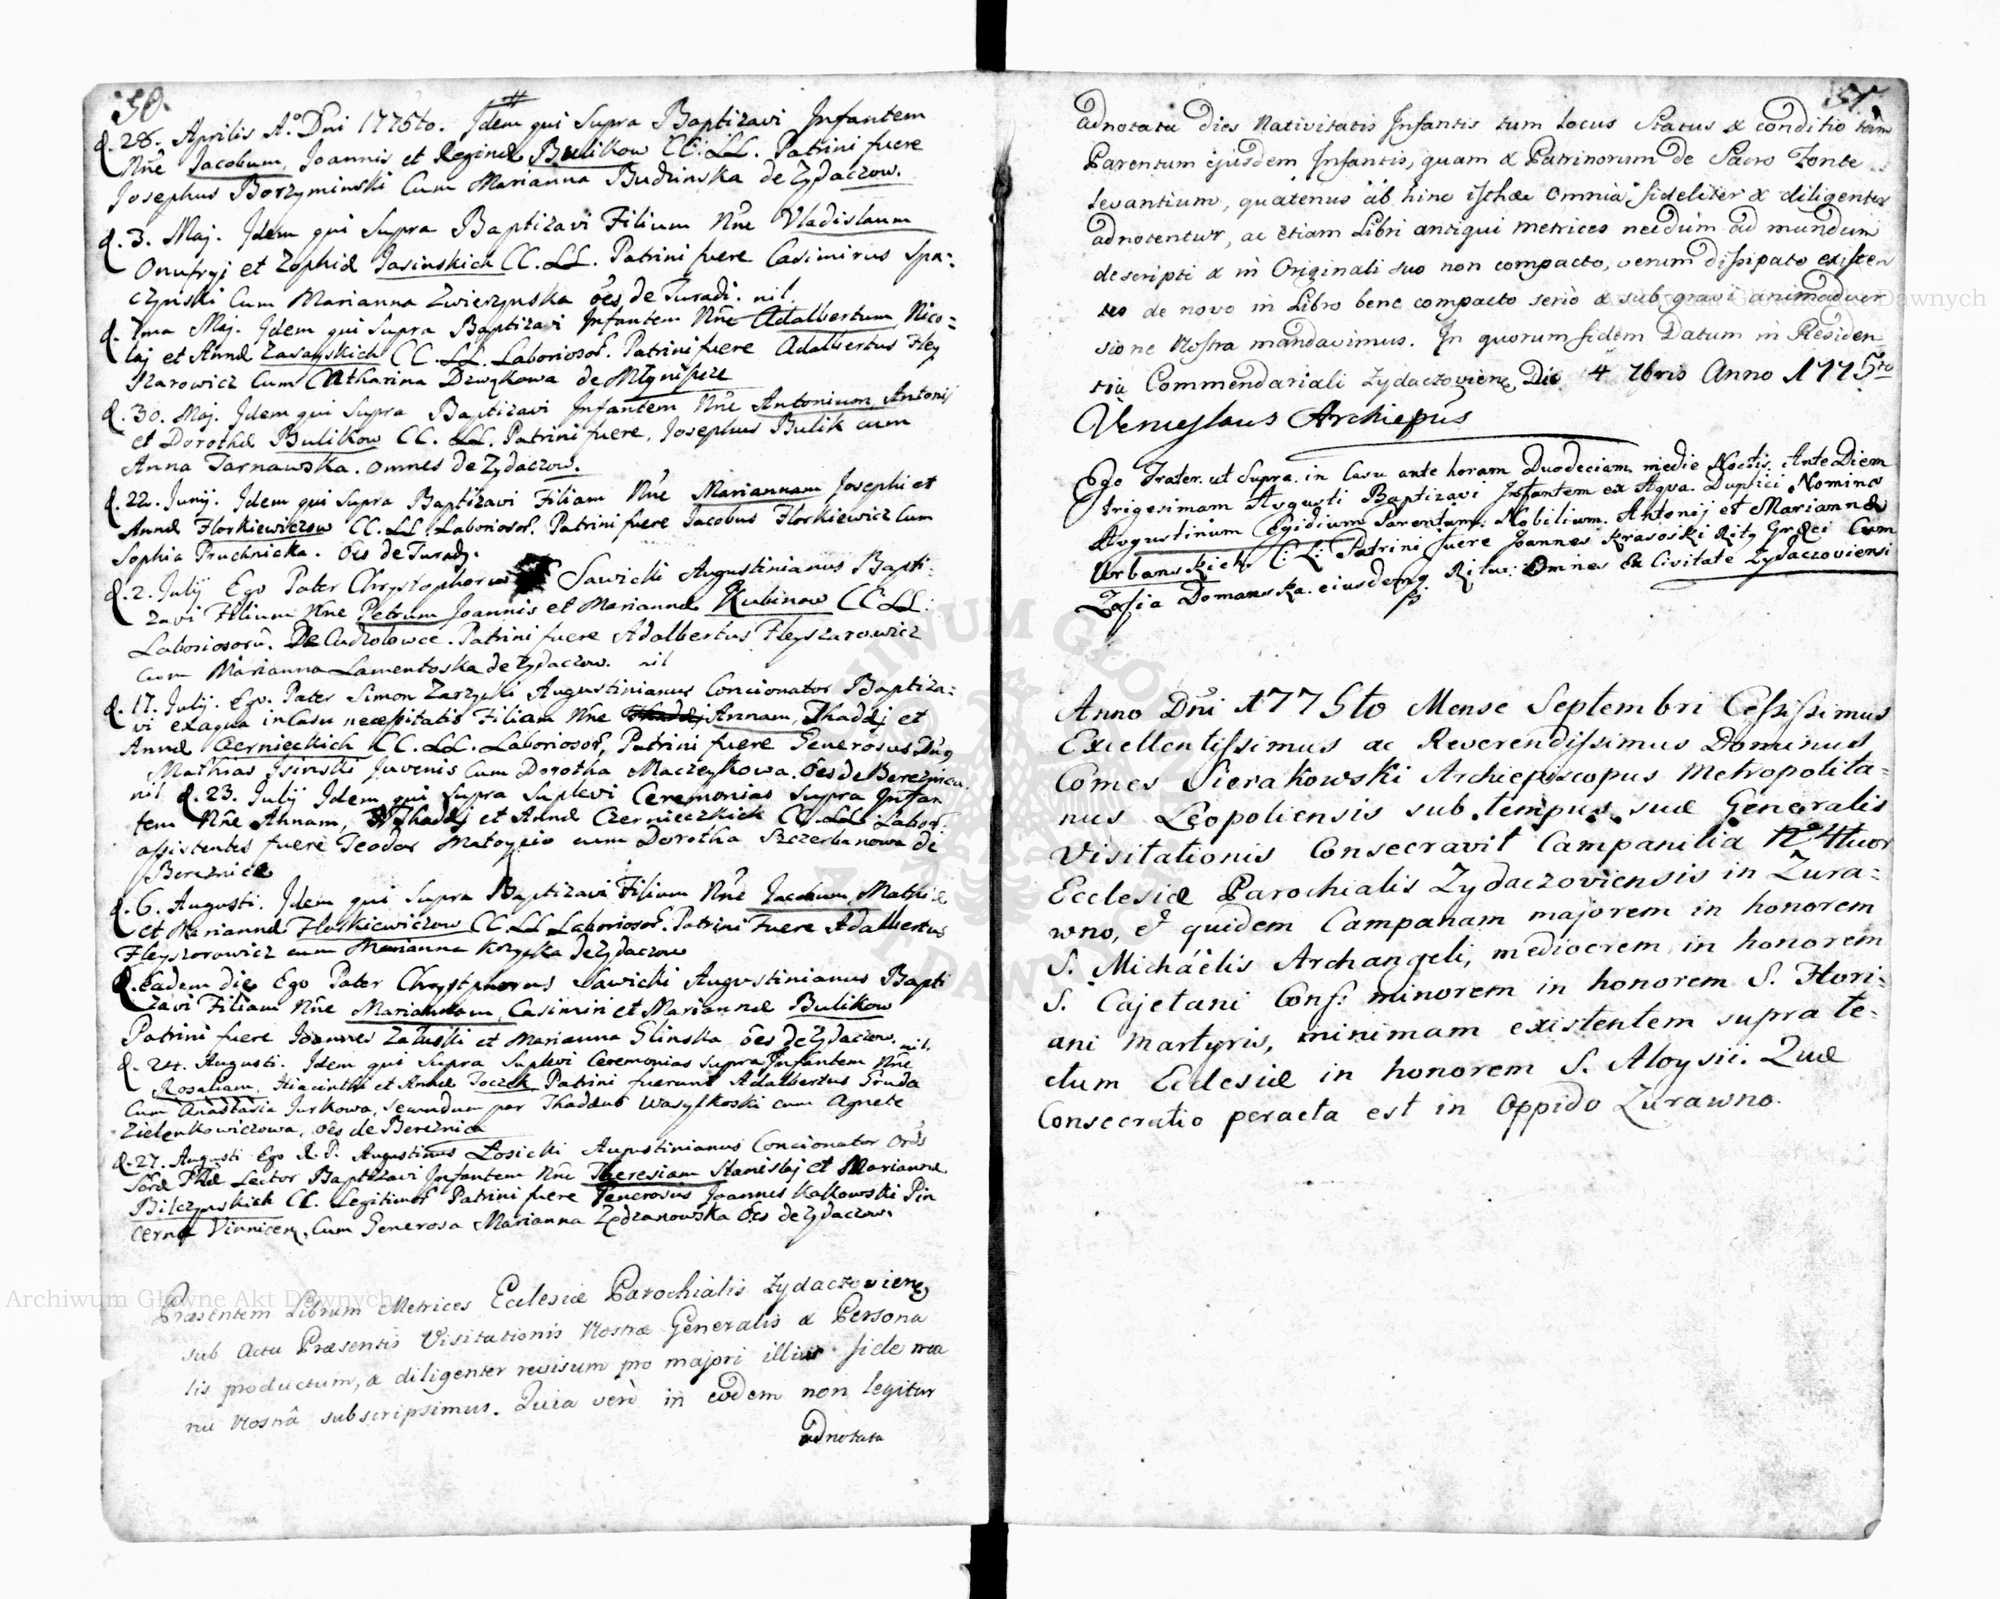 50.
d. 26. Aprilis A.o Dni 1775to. Idem qui Supra Baptizavi Infantem
Nne Jacobum, Joannis et Reginæ Bulikow CC: LL. Patrini fuere
Josephus Borzyminski Cum Marianna Budzinska de Zydaczow.
d. 3. Maj. Idem qui Supra Baptizavi Filium Nne Vladislaum
Onufryj et Zophiæ Jasinskich CC. LL. Patrini fuere Casimirus Spa-
czynski Cum Marianna Zwierzynska oes de Turadi. nil.
d. 7ma Maj. Idem qui Supra Baptizavi Infantem Nne Adalbertum, Nico-
laj et Annæ CC. LL. Laboriosor. Patrini fuere Adalbertus Fley
szarowicz Cum Catharina de
d. 30. Maj. Idem qui Supra Baptizavi Infantem Nne Antonium, Antonij
et Dorotheæ Bulikow CC. LL. Patrini fuere, Josephus Bulik cum
Anna Tarnawska. omnes de Zydaczow.
d. 22. Junij. Idem qui Supra Baptizavi Filiam Nne Mariannam Josephi et
Annæ Florkiewiczow CC. LL. Laboriosor. Patrini fuere Jacobus Florkiewicz Cum
Sophia Pruchnicka. oes de Turady.
d. 2. Julij Ego Pater Chrystophorus Sawicki Augustinianus Bapti-
zavi Filium Nne Petrum Joannis et Mariannæ Kubinow CC LL:
Laboriosorũ. De Cudzolowce. Patrini fuere Adalbertus Fleyszarowicz
Cum Marianna Lamentoska de Zydaczow. nil
d. 17. Julij. Ego. Pater Simon Zarzycki Augustinianus Concionator Baptiza-
vi ex aqua in Casu necessitatis Filiam Nne Annam, Thaddj et
Annæ Czernieckich CC. LL. Laboriosor, Patrini fuere Generosus Dng
Mathias Isinski Juvenis Cum Dorotha Maczeykowa. oes de Bereznica.
nil d. 23. Julij Idem qui Supra Suplevi Ceremonias Supra Infan
tem Nne Annam, Thadej et Annæ Czernieczkich CC. LL. Labor.
assistentes fuere Teodor Matoycio cum Dorotha Szczerbanowa de
Bereznica
d. 6. Augusti. Idem qui Supra Baptizavi Filium Nne Jacobum, Mathiæ
et Mariannæ Florkiewiczow CC. LL Laboriosor. Patrini Fuere Adalbertus
Fleyszorowicz cum Marianna de Zydaczow
d. Eadem die Ego Pater Chrystphorus Sawicki Augustinianus Bapti
zavi Filiam Nne Mariannam, Casimiri et Mariannæ Bulikow
Patrini fuere Joannes Załuski et Marianna Glinska oes de Zydaczow. nil.
d. 24. Augusti. Idem qui Supra Suplevi Ceremonias Supra Infantem Nne
Rosaliam, Hiacinthi et Annæ Joczek Patrini fuerunt Adalbertus Gruda
Cum Anastasia Jurkowa, Secundum par Thaddeus Wasylkoski cum Agnete
Zielenkowiczowa, oes de Bereznica
d. 27. Augusti Ego R. P. Augustinus Łosicki Augustinianus Concionator Ords
Lector Baptizavi Infantem Nne Theresiam Stanislaj et Mariannæ
Bilczynskich CC. Legitimor Patrini fuere Generosus Joannes Kalkowski Pin
cerna Vinnicen, Cum Generosa Marianna oes de Zydaczow.
Præsentem Librum Metrices Ecclesiæ Parochialis Zydaczovien
sub Actu Præsentis Visitationis Nostræ Generalis & Persona
lis productum, & diligenter revisum pro majori illius fide ma
nu Nostrâ subscripsimus. Quia verò in eodem non legitur
adnotata
51.
adnotata dies Nativitatis Infantis tum locus Status & conditio tam
Parentum ejusdem Infantis, quam & Patrinorum de Sacro Fonte
levantium, quatenus ab hinc isthæc omnia fideliter & diligenter
adnotentur, ac etiam Libri antiqui Metrices necdum ad mundum
descripti & in Originali suo non compacto, verum dissipato existen
tes de novo in Libro bene compacto seriò & sub gravi animadver
sione Nostra mandavimus. In quorum fidem Datum in Residen
tia Commendariali Zydaczovien, Die 4 7bris Anno 1775to
Venceslaus Archiepus
Ego Frater ut Supra. in Casu ante horam Duodeciam medie Noctis. Ante Diem
trigesimam Avgusti Baptizavi Infantem ex Aqva. Duplici Nomine
Avgustinum Egidium Parentum. Nobilium. Antonij et Mariannæ
Urbanskich. C: L: Patrini fuere Joannes Krasoski Rity Græci Cum
Zofia Domanska. eiusdemq. Ritus: Omnes Ex Civitate Zydaczoviensi
Anno Dni 1775to Mense Septembri Celsissimus
Excellentissimus ac Reverendissimus Dominus
Comes Sierakowski Archiepiscopus Metropolita-
nus Leopoliensis sub tempus suæ Generalis
Visitationis Consecravit Campanilia No 4tuor
Ecclesiæ Parochialis Zydaczoviensis in Zura-
wno, et quidem Campanam majorem in honorem
S. Michaëlis Archangeli, mediocrem in honorem
S. Cajetani Conf: minorem in honorem S. Flori-
ani Martyris, minimam existentem supra te-
ctum Ecclesiæ in honorem S. Aloysii. Quæ
Consecratio peracta est in Oppido Zurawno.
Archiwum Główne Akt Dawnych
Archiwum Główne Akt Dawnych
ARCHIWUM GŁÓWNE AKT DAWNYCH